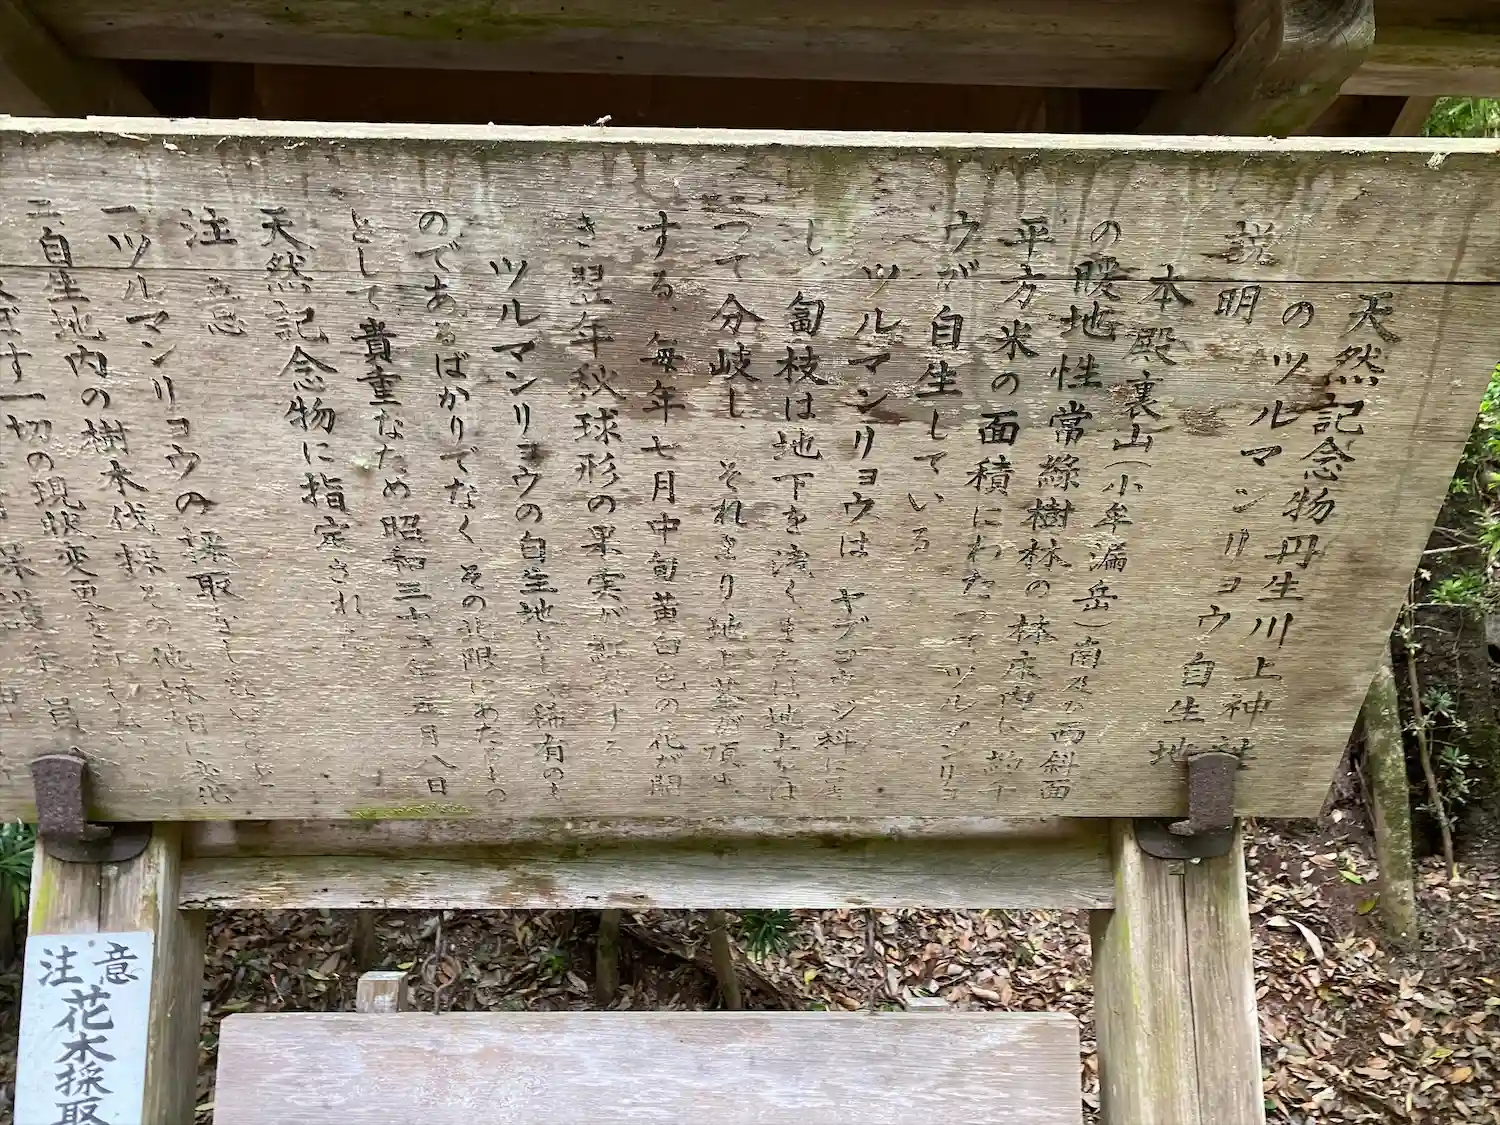 天然記念物丹生川上神社
のツルマンリョウ自生地
説明
本殿裏山(小牟漏岳)南及び西斜面
の暖地性常緑樹林の林床内に約千
平方米の面積にわたつてツルマンリヨ
ウが自生している
ツルマンリョウはヤブコウジ科に属
し、匐枝は地下を浅くまたは地上をは
つて分岐し、それより地上茎が
する、毎年七月中旬黄白色の花が開
き翌年秋球形の果実が熟する
ツルマンリョウの自生地として稀有のも
のであるばかりでなく、その北限にあたるもの
として貴重なため昭和三十二年五月八日
天然記念物に指定され
注意
一ツルマンリョウの採取をしないこと
二自生地内の樹木伐採その他
ぼす一切の現状変更を行
員
注意
花木採取